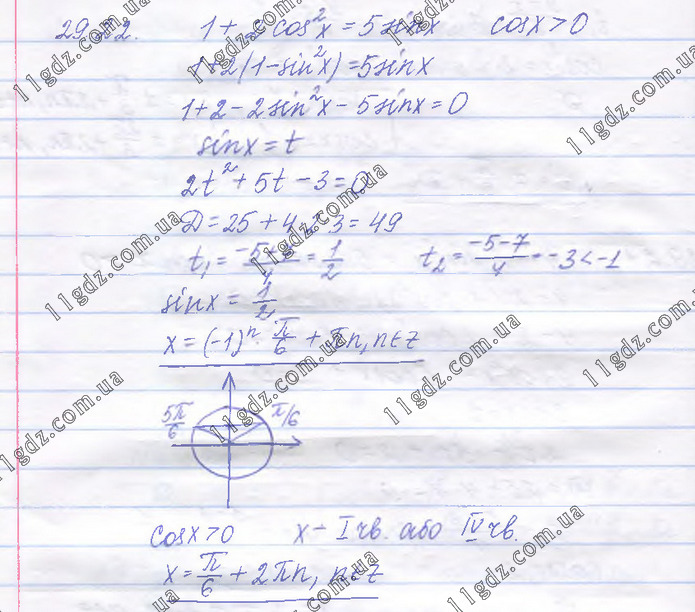 29.22. 1 + 2 cos²x = 5 sinx cosx > 0
1+2(1-sin²x)=5sinx
1+2-2sin²x-5sinx=0
sinx=t
2t²+5t-3=0
D=25+4·2·3=49
t₁=(-5+7)/4=1/2 t₂=(-5-7)/4=-3<-1
sinx=1/2
x=(-1)ⁿ π/6+πn, n∈Z
5π/6 π/6
cosx>0 x - I чв. або IV чв.
x=π/6+2πn, n∈Z
11gdz.com.ua
11gdz.com.ua
11gdz.com.ua
11gdz.com.ua
11gdz.com.ua
11gdz.com.ua
11gdz.com.ua
11gdz.com.ua
11gdz.com.ua
11gdz.com.ua